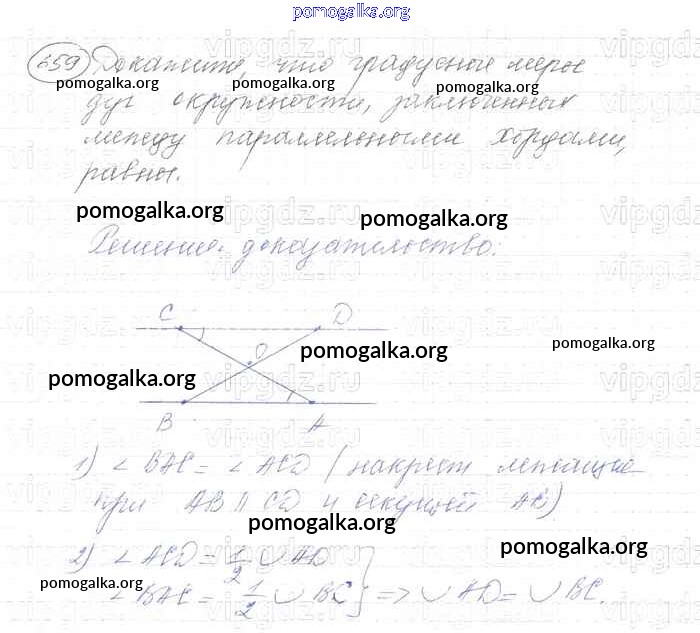 pomogalka.org
659 Докажите, что градусные меры
pomogalka.org pomogalka.org pomogalka.org
дуг окружности, заключенных
между параллельными хордами,
равны.
pomogalka.org pomogalka.org
Решение: доказательство:
C D
O
pomogalka.org pomogalka.org
pomogalka.org
B A
1) ∠ BAC = ∠ ACD (накрест лежащие
при AB || CD и секущей AC)
pomogalka.org
2) ∠ ACD = 1/2 ∪ AD
pomogalka.org
∠ BAC = 1/2 ∪ BC } => ∪ AD = ∪ BC.
pomogalka.org
vipgdz.ru